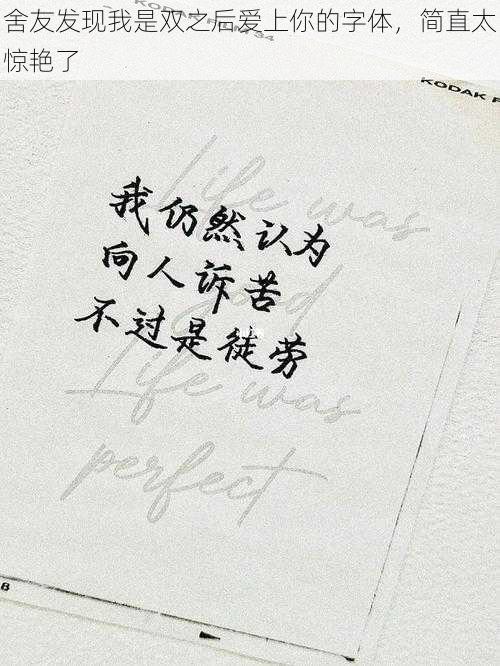 舍友发现我是双之后爱上你的字体，简直太
惊艳了
KODAK
Life was
我仍然认为
向人诉苦
good
不过是徒劳
Life was
perfect
8